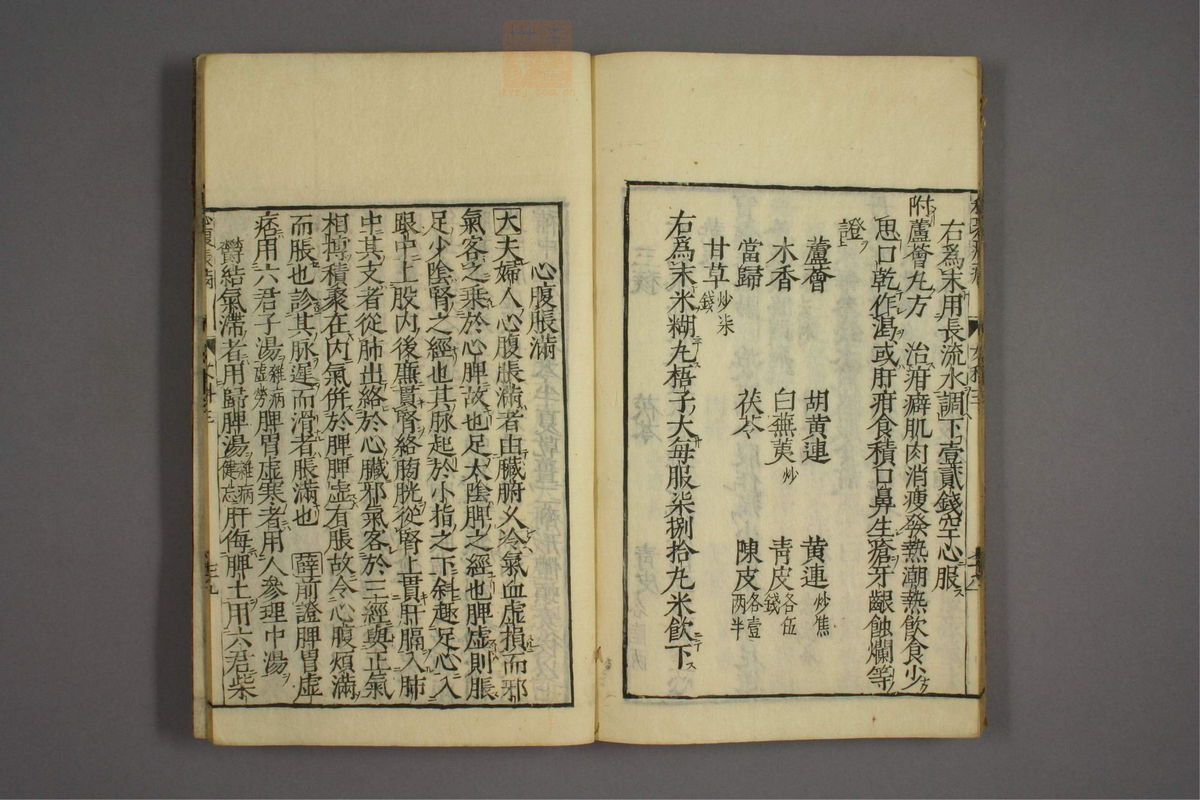 右爲末用長流水調下壹貳錢空心服
附蘆薈丸方 治疳癖肌肉消瘦發熱潮熱飲食少
思口乾作渴或肝疳食積口鼻生瘡牙齦蝕爛等
證
蘆薈 胡黃連 黃連炒焦
木香 白蕪荑炒 青皮各伍錢
當歸 茯苓 陳皮各壹两半
甘草炒柒錢
右爲末米糊丸梧子大每服柒捌拾丸米飲下
心腹脹滿
大夫婦人心腹脹滿者由臟腑乆冷氣血虛損而邪
氣客之乘於心脾故也足太陰脾之經也脾虛則脹
足少陰腎之經也其脉起於小指之下斜趣足心入
跟中上股内後廉貫腎絡膀胱從腎上貫肝膈入肺
中其支者從肺出絡於心臟邪氣客於三經與正氣
相搏積聚在内氣併於脾脾虛有脹故令心腹煩滿
而脹也診其脉遲而滑者脹滿也 薛前證脾胃虛
痞用六君子湯雜病虛勞脾胃虛寒者用人參理中湯
鬱結氣滯者用歸脾湯雜病健忘肝侮脾土用六君柴